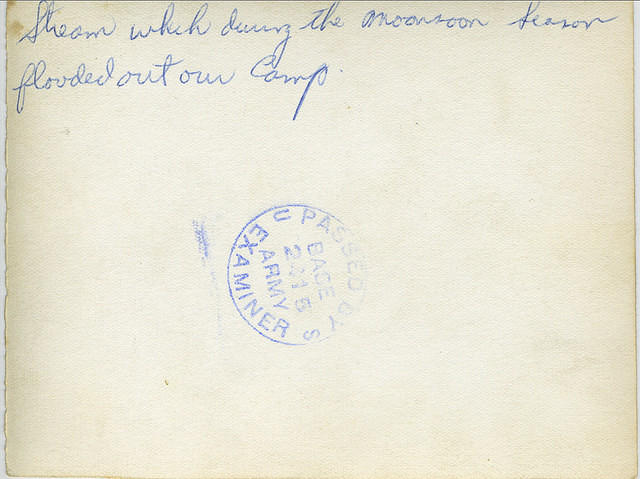 Stream which during the moonsoon season
flooded out our Camp.
PASSED BY
BASE
ARMY
EXAMINER
U S